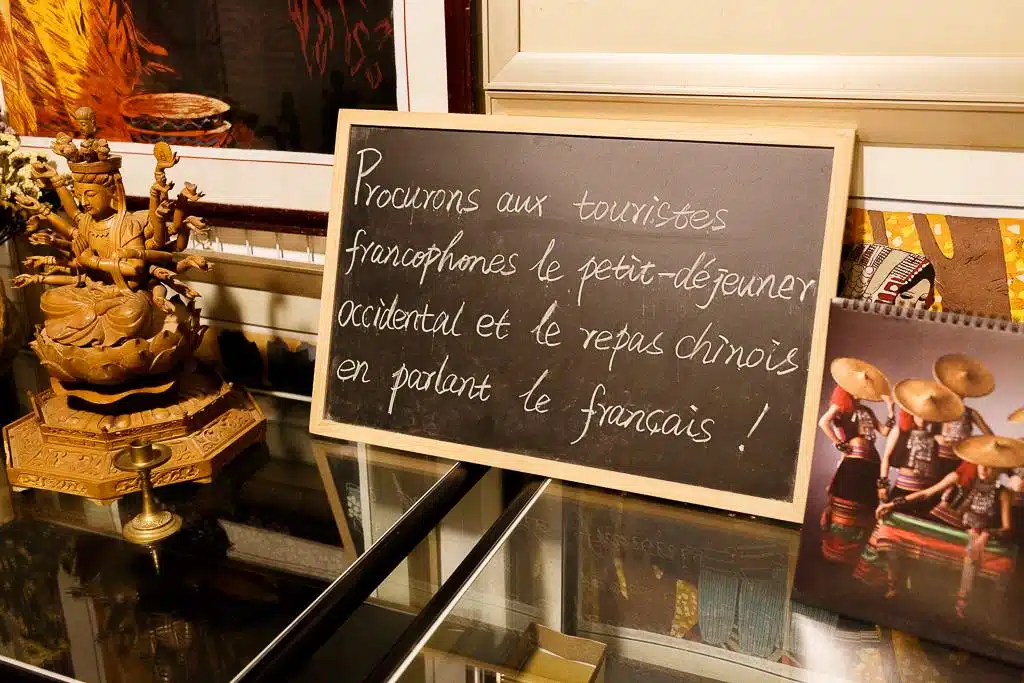 Procurons aux touristes
francophones le petit-déjeuner
occidental et le repas chinois
en parlant le français !